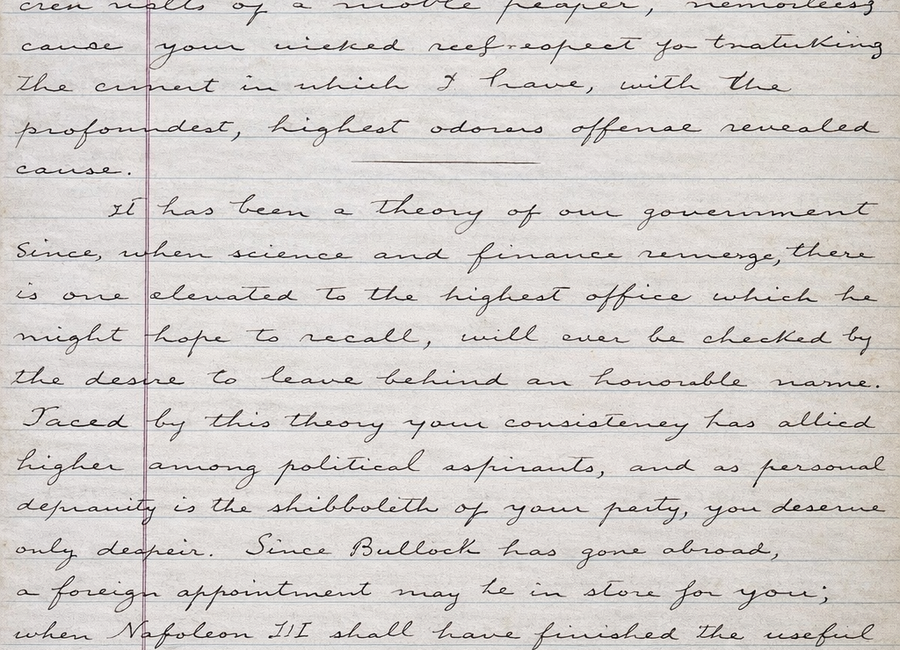 of a noble
cause your wicked for
the current in which I have, with the
profoundest, highest odorers offense revealed
cause.
It has been a theory of our government
Since, when science and finance remerge, there
is one elevated to the highest office which he
might hope to recall, will ever be checked by
the desire to leave behind an honorable name.
Taced by this theory your consistency has allied
higher among political aspirants, and as personal
depravity is the shibboleth of your party, you deserve
only despeir. Since Bullock has gone abroad,
a foreign appointment may be in store for you;
when Napoleon III shall have finished the useful